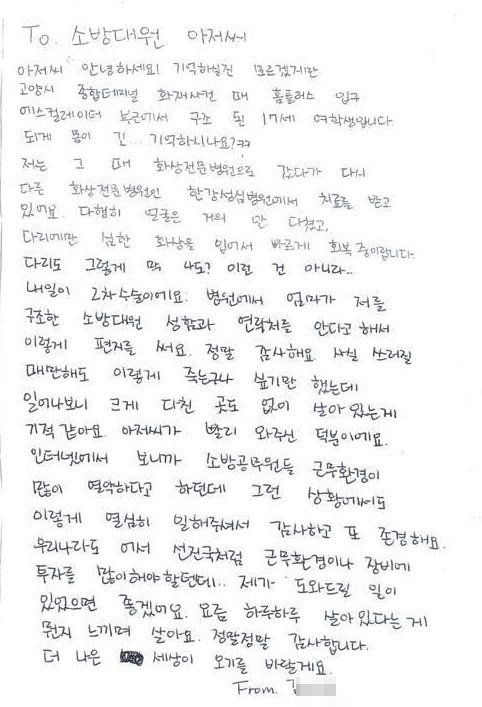 To. 소방대원 아저씨
아저씨 안녕하세요! 기억하실진 모르겠지만
고양시 종합터미널 화재사건 때 홈플러스 입구
에스컬레이터 부근에서 구조 된 17세 여학생입니다
되게 몸이 긴... 기억하시나요?ㅋㅋ
저는 그 때 화상전문병원으로 갔다가 다시
다른 화상전문병원인 한강성심병원에서 치료를 받고
있어요. 다행히 얼굴은 거의 안 다쳤고,
다리에만 심한 화상을 입어서 빠르게 회복 중이랍니다
다리도 그렇게 막 나도? 이런 건 아니라..
내일이 2차수술이에요. 병원에서 엄마가 저를
구조한 소방대원 성함과 연락처를 안다고 해서
이렇게 편지를 써요. 정말 감사해요. 사실 쓰러질
때만해도 이렇게 죽는구나 싶기만 했는데
일어나보니 크게 다친 곳도 없이 살아 있는게
기적 같아요. 아저씨가 빨리 와주신 덕분이에요.
인터넷에서 보니까 소방공무원들 근무환경이
많이 열악하다고 하던데 그런 상황에서도
이렇게 열심히 일해주셔서 감사하고 또 존경해요.
우리나라도 어서 선진국처럼 근무환경이나 장비에
투자를 많이해야할텐데.. 제가 도와드릴 일이
있었으면 좋겠어요. 요즘 하루하루 살아있다는 게
뭔지 느끼며 살아요. 정말정말 감사합니다.
더 나은 세상이 오기를 바랄게요.
From. 김